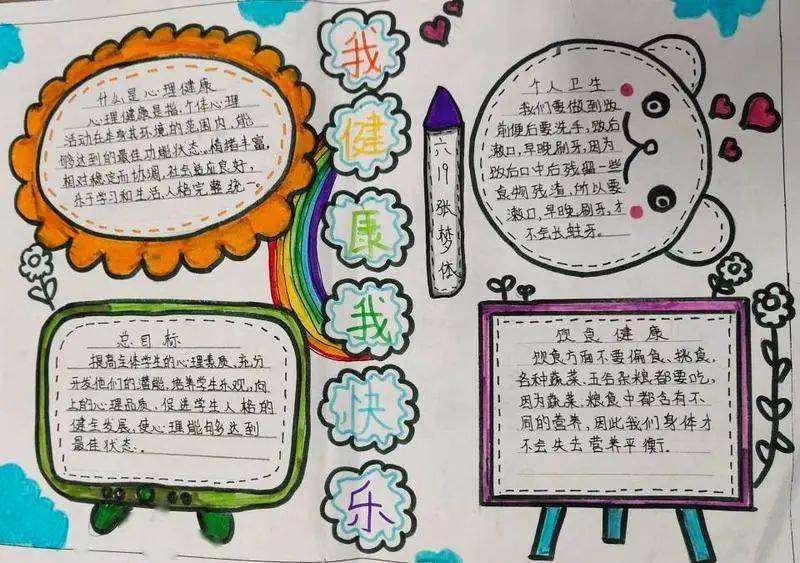 什么是心理健康
心理健康是指,个体心理
活动在本身其环境的范围内,能
够达到的最佳功能状态。情绪丰富,
相对稳定而协调,社会适应良好,
乐于学习和生活,人格完整统一。
总目标
提高全体学生的心理素质,充分
开发他们的潜能,培养学生乐观,向
上的心理品质,促进学生人格的
健全发展,使心理能够达到
最佳状态。
我
健
康
我
快
乐
六19张梦体
个人卫生
我们要做到饭
前便后要洗手,饭后
漱口,早晚刷牙,因为
饭后口中后残留一些
食物残渣,所以要
漱口,早晚刷牙,才
不会长蛀牙。
饮食健康
饮食方面不要偏食、挑食,
各种蔬菜、五谷杂粮都要吃,
因为蔬菜、粮食中都含有不
同的营养,因此我们身体才
不会失去营养平衡。